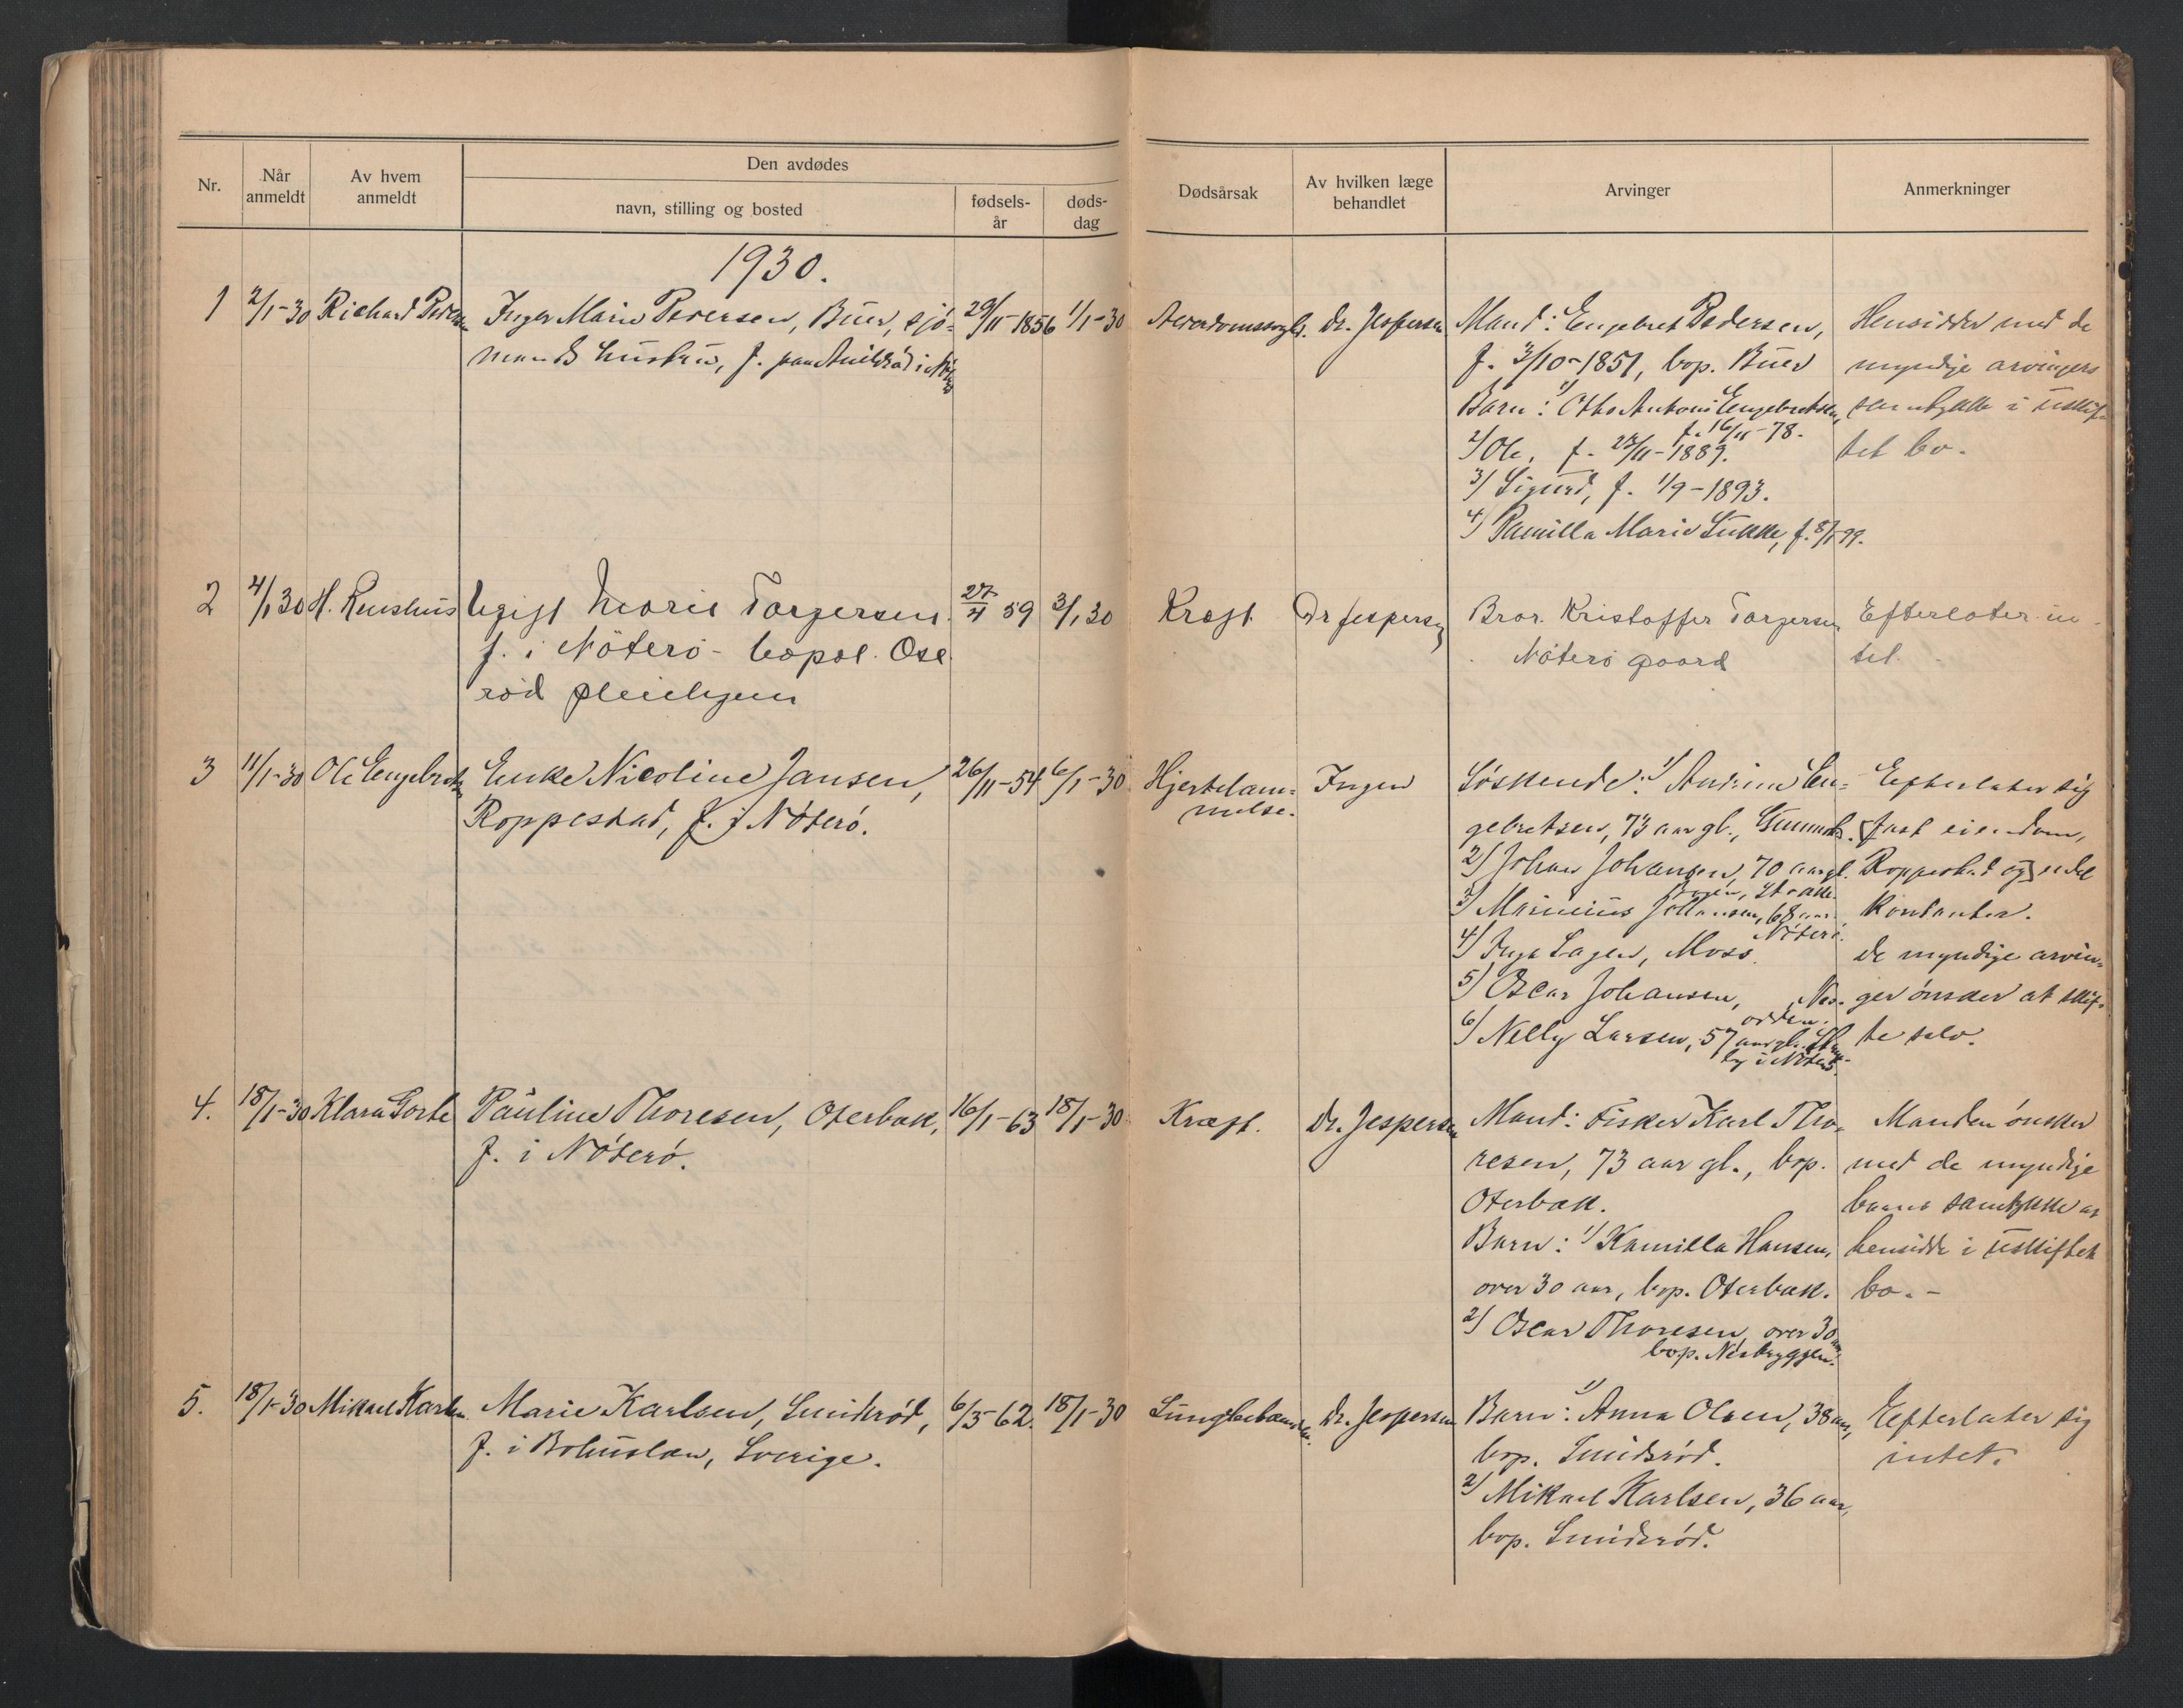 Nr.
Når anmeldt
Av hvem anmeldt
Den avdødes
navn, stilling og bosted
fødsels-år
døds-dag
Dødsårsak
Av hvilken læge behandlet
Arvinger
Anmerkninger
1930.
1
2/1-30
Richard Pedersen
Inger Marie Pedersen, Buer, sjö-
mands hustru, f. paa i
29/11-1856
1/1-30
Dr. Jespersen
Mand: Engebret Pedersen,
f. 3/10-1851, bop. Buer
Barn: 1) Otto Antoni Engebretsen,
f. 16/11-78.
2) Ole, f. 27/11-1889.
3) Sigurd, f. 1/9-1893.
4) Marie Lukke, f. 8/1-99.
Hensidder med de
myndige arvingers
samtykke i uskif-
tet bo.
2
4/1 30
H. Renshus
Ugift Marie Torgersen
f. i Nöterö - bopæl. Ose
röd pleiehjem
27/4 59
3/1 30
Kræft.
Dr Jespersen
Bror. Kristoffer Torgersen
Nöterö gaard
Efterlater in
tet.
3
11/1-30
Ole Engebretsen
Enke Nicoline Jansen,
Roppestad, f. i Nöterö.
26/11-54
6/1-30
Hjertelam-
melse.
Ingen
Söskende: 1) Andrine En-
gebretsen, 73 aar gl.,
2) Johan Johansen, 70 aar gl.
3) Marinius Johansen, 68 aar
Nöterö.
4) Inga Lagen, Moss.
5) Oscar Johansen, Nes-
odden.
6) Nelly Larsen, 57 aar gl.
i Nöterö.
Efterlater sig
fast eiendom,
Roppestad og endel
kontanter.
De myndige arvin-
ger önsker at skif-
te selv.
4.
18/1-30
Klara Sorte
Pauline Thoresen, Oterbak,
f. i Nöterö.
16/1-63
18/1-30
Kræft.
Dr. Jespersen
Mand: Fisker Karl Tho-
resen, 73 aar gl., bop.
Oterbak.
Barn: 1) Kamilla Hansen,
over 30 aar, bop. Oterbak.
2) Oscar Thoresen, over 30 aar,
bop. Nesbryggen.
Manden önsker
med de myndige
barns samtykke at
hensidde i uskiftet
bo. -
5.
18/1-30
Mikael Karlsen
Marie Karlsen, Smidsröd,
f. i Bohuslen, Sverige.
6/3-62.
18/1-30
Dr. Jespersen
Barn: 1) Anna Olsen, 38 aar,
bop. Smidsröd.
2) Mikael Karlsen, 36 aar,
bop. Smidsröd.
Efterlater sig
intet.